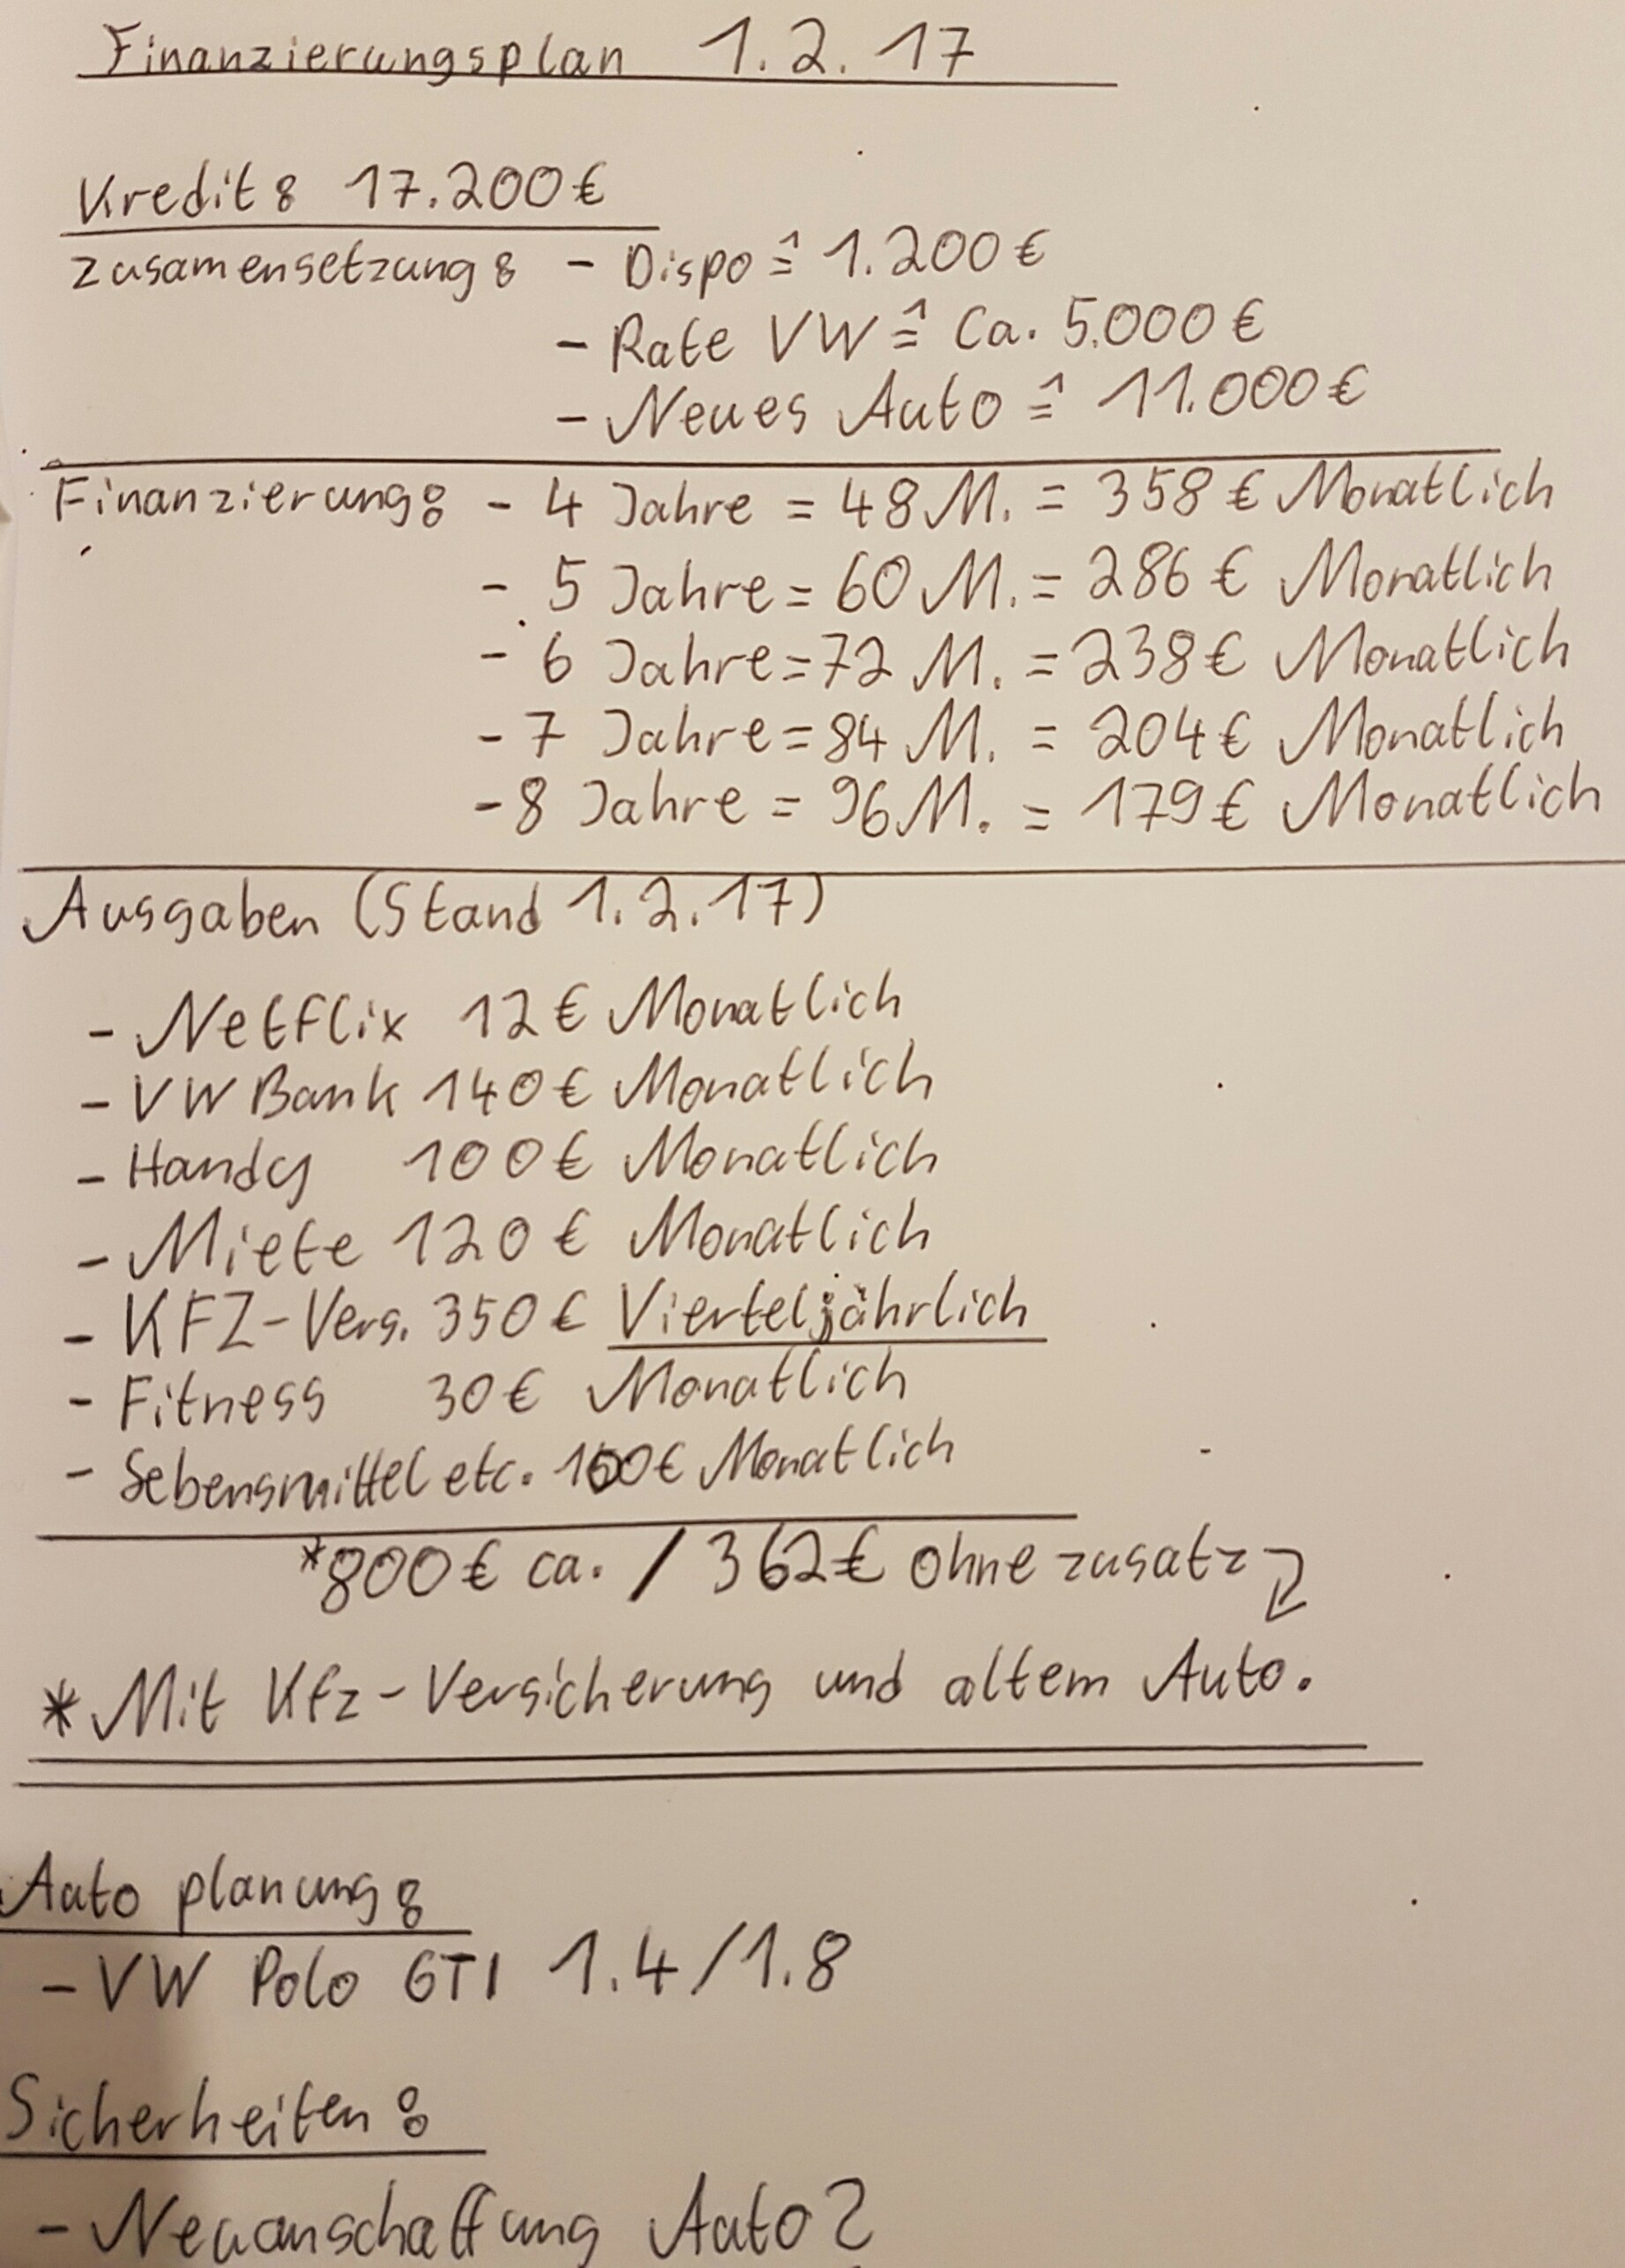 Finanzierungsplan 1.2.17
Kredit: 17.200€
Zusamensetzung: - Dispo ≙ 1.200€
- Rate VW ≙ Ca. 5.000€
- Neues Auto ≙ 11.000€
Finanzierung: - 4 Jahre = 48 M. = 358€ Monatlich
- 5 Jahre = 60 M. = 286€ Monatlich
- 6 Jahre = 72 M. = 238€ Monatlich
- 7 Jahre = 84 M. = 204€ Monatlich
- 8 Jahre = 96 M. = 179€ Monatlich
Ausgaben (Stand 1.2.17)
- Netflix 12€ Monatlich
- VW Bank 140€ Monatlich
- Handy 100€ Monatlich
- Miete 120€ Monatlich
- KFZ-Vers. 350€ Vierteljährlich
- Fitness 30€ Monatlich
- Lebensmittel etc. Monatlich
*800€ ca. / 362€ ohne zusatz
* Mit Kfz-Versicherung und altem Auto.
Auto planung:
- VW Polo GTI 1.4/1.8
Sicherheiten:
- Neuanschaffung Auto?